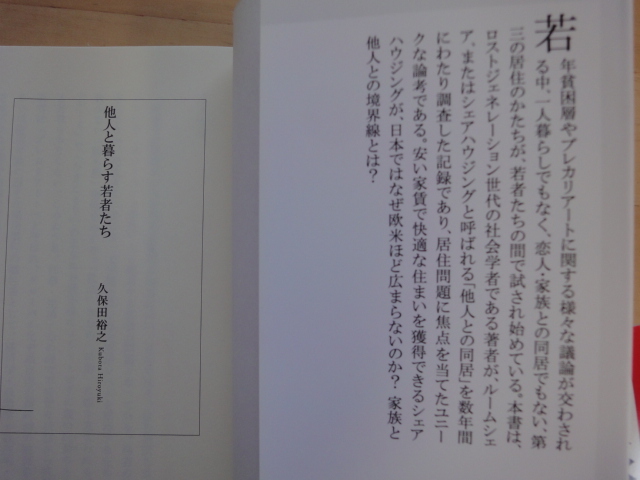 若年貧困層やプレカリアートに関する様々な議論が交わされ
る中、一人暮らしでもなく、恋人・家族との同居でもない、第
三の居住のかたちが、若者たちの間で試され始めている。本書は、
ロストジェネレーション世代の社会学者である著者が、ルームシェ
ア、またはシェアハウジングと呼ばれる「他人との同居」を数年間
にわたり調査した記録であり、居住問題に焦点を当てたユニー
クな論考である。安い家賃で快適な住まいを獲得できるシェア
ハウジングが、日本ではなぜ欧米ほど広まらないのか？ 家族と
他人との境界線とは？
他人と暮らす若者たち
久保田裕之
Kubota Hiroyuki